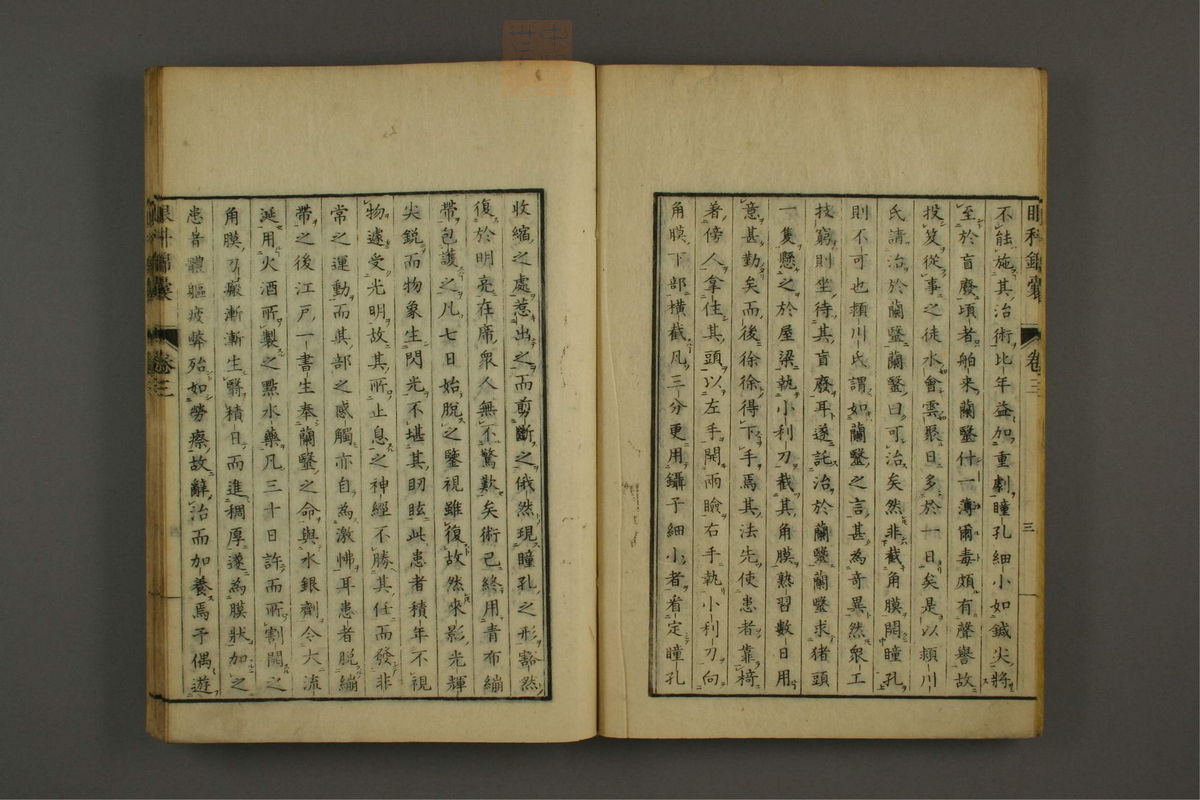 眼科錦囊 卷三 三
不能施其治術比年益加重劇瞳孔細小如鍼尖將
至於盲廢頃者舶來蘭毉什一薄爾毒頗有聲譽故
投笈從事之徒水會雲聚日多於一日矣是以頬川
氏請治於蘭毉蘭毉曰可治矣然非截角膜開瞳孔
則不可也頬川氏謂如蘭毉之言甚為奇異然衆工
技窮則坐待其盲廢耳遂託治於蘭毉蘭毉求猪頭
一隻懸之於屋梁執小利刀截其角膜熟習數日用
意甚勤矣而後徐徐得下手焉其法先使患者靠椅
著傍人拿住其頭以左手開兩瞼右手執小利刀向
角膜下部橫截凡三分更用鑷子細小者看定瞳孔
收縮之處惹出之而剪斷之俄然現瞳孔之形豁然
復於明亮在席衆人無不驚歎矣術已終用青布繃
帶包護之凡七日始脫之鑒視雖復故然來影光輝
尖銳而物象生閃光不堪其眀眩此患者積年不視
物遽受光明故其所止息之神經不勝其任而發非
常之運動而其部之感觸亦自為激怫耳患者脫繃
帶之後江戸一書生奉蘭毉之命與水銀劑令大流
涎用火酒所製之點水藥凡三十日許而所割開之
角膜刀瘢漸漸生翳積日而進稠厚遂為膜狀加之
患者體軀疲弊殆如勞瘵故辭治而加養焉予偶遊
眼科錦囊 卷三